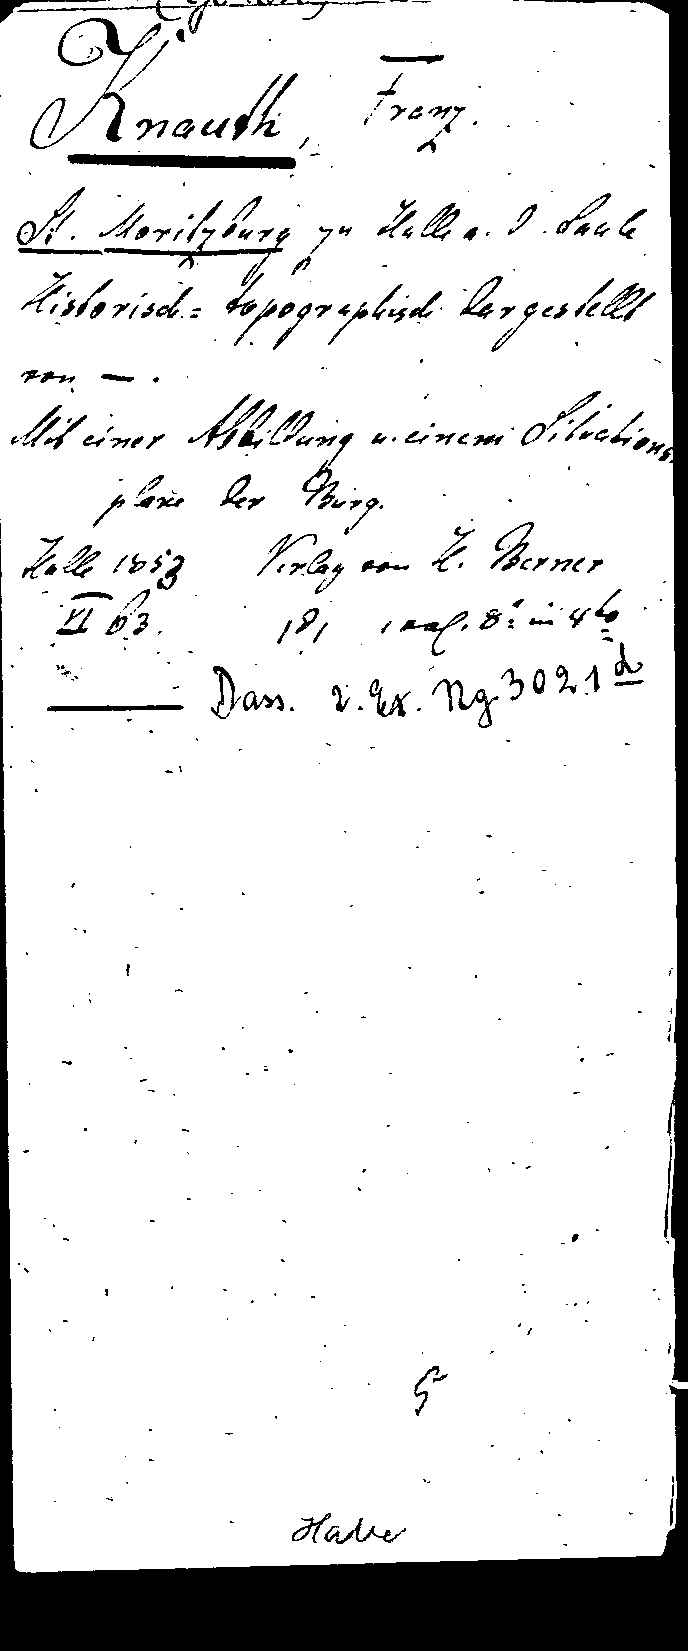 Knauth, Franz.
St. Moritzburg zu Halle a. d. Saale
Historisch= topographisch dargestellt
von — .
Mit einer Abbildung u. einem Situations
plane der Burg.
Halle 1853 Verlag von H. Berner
VI 63. 8° in 4to
Dass. 2. Ex. Ng 3021 d
Halle